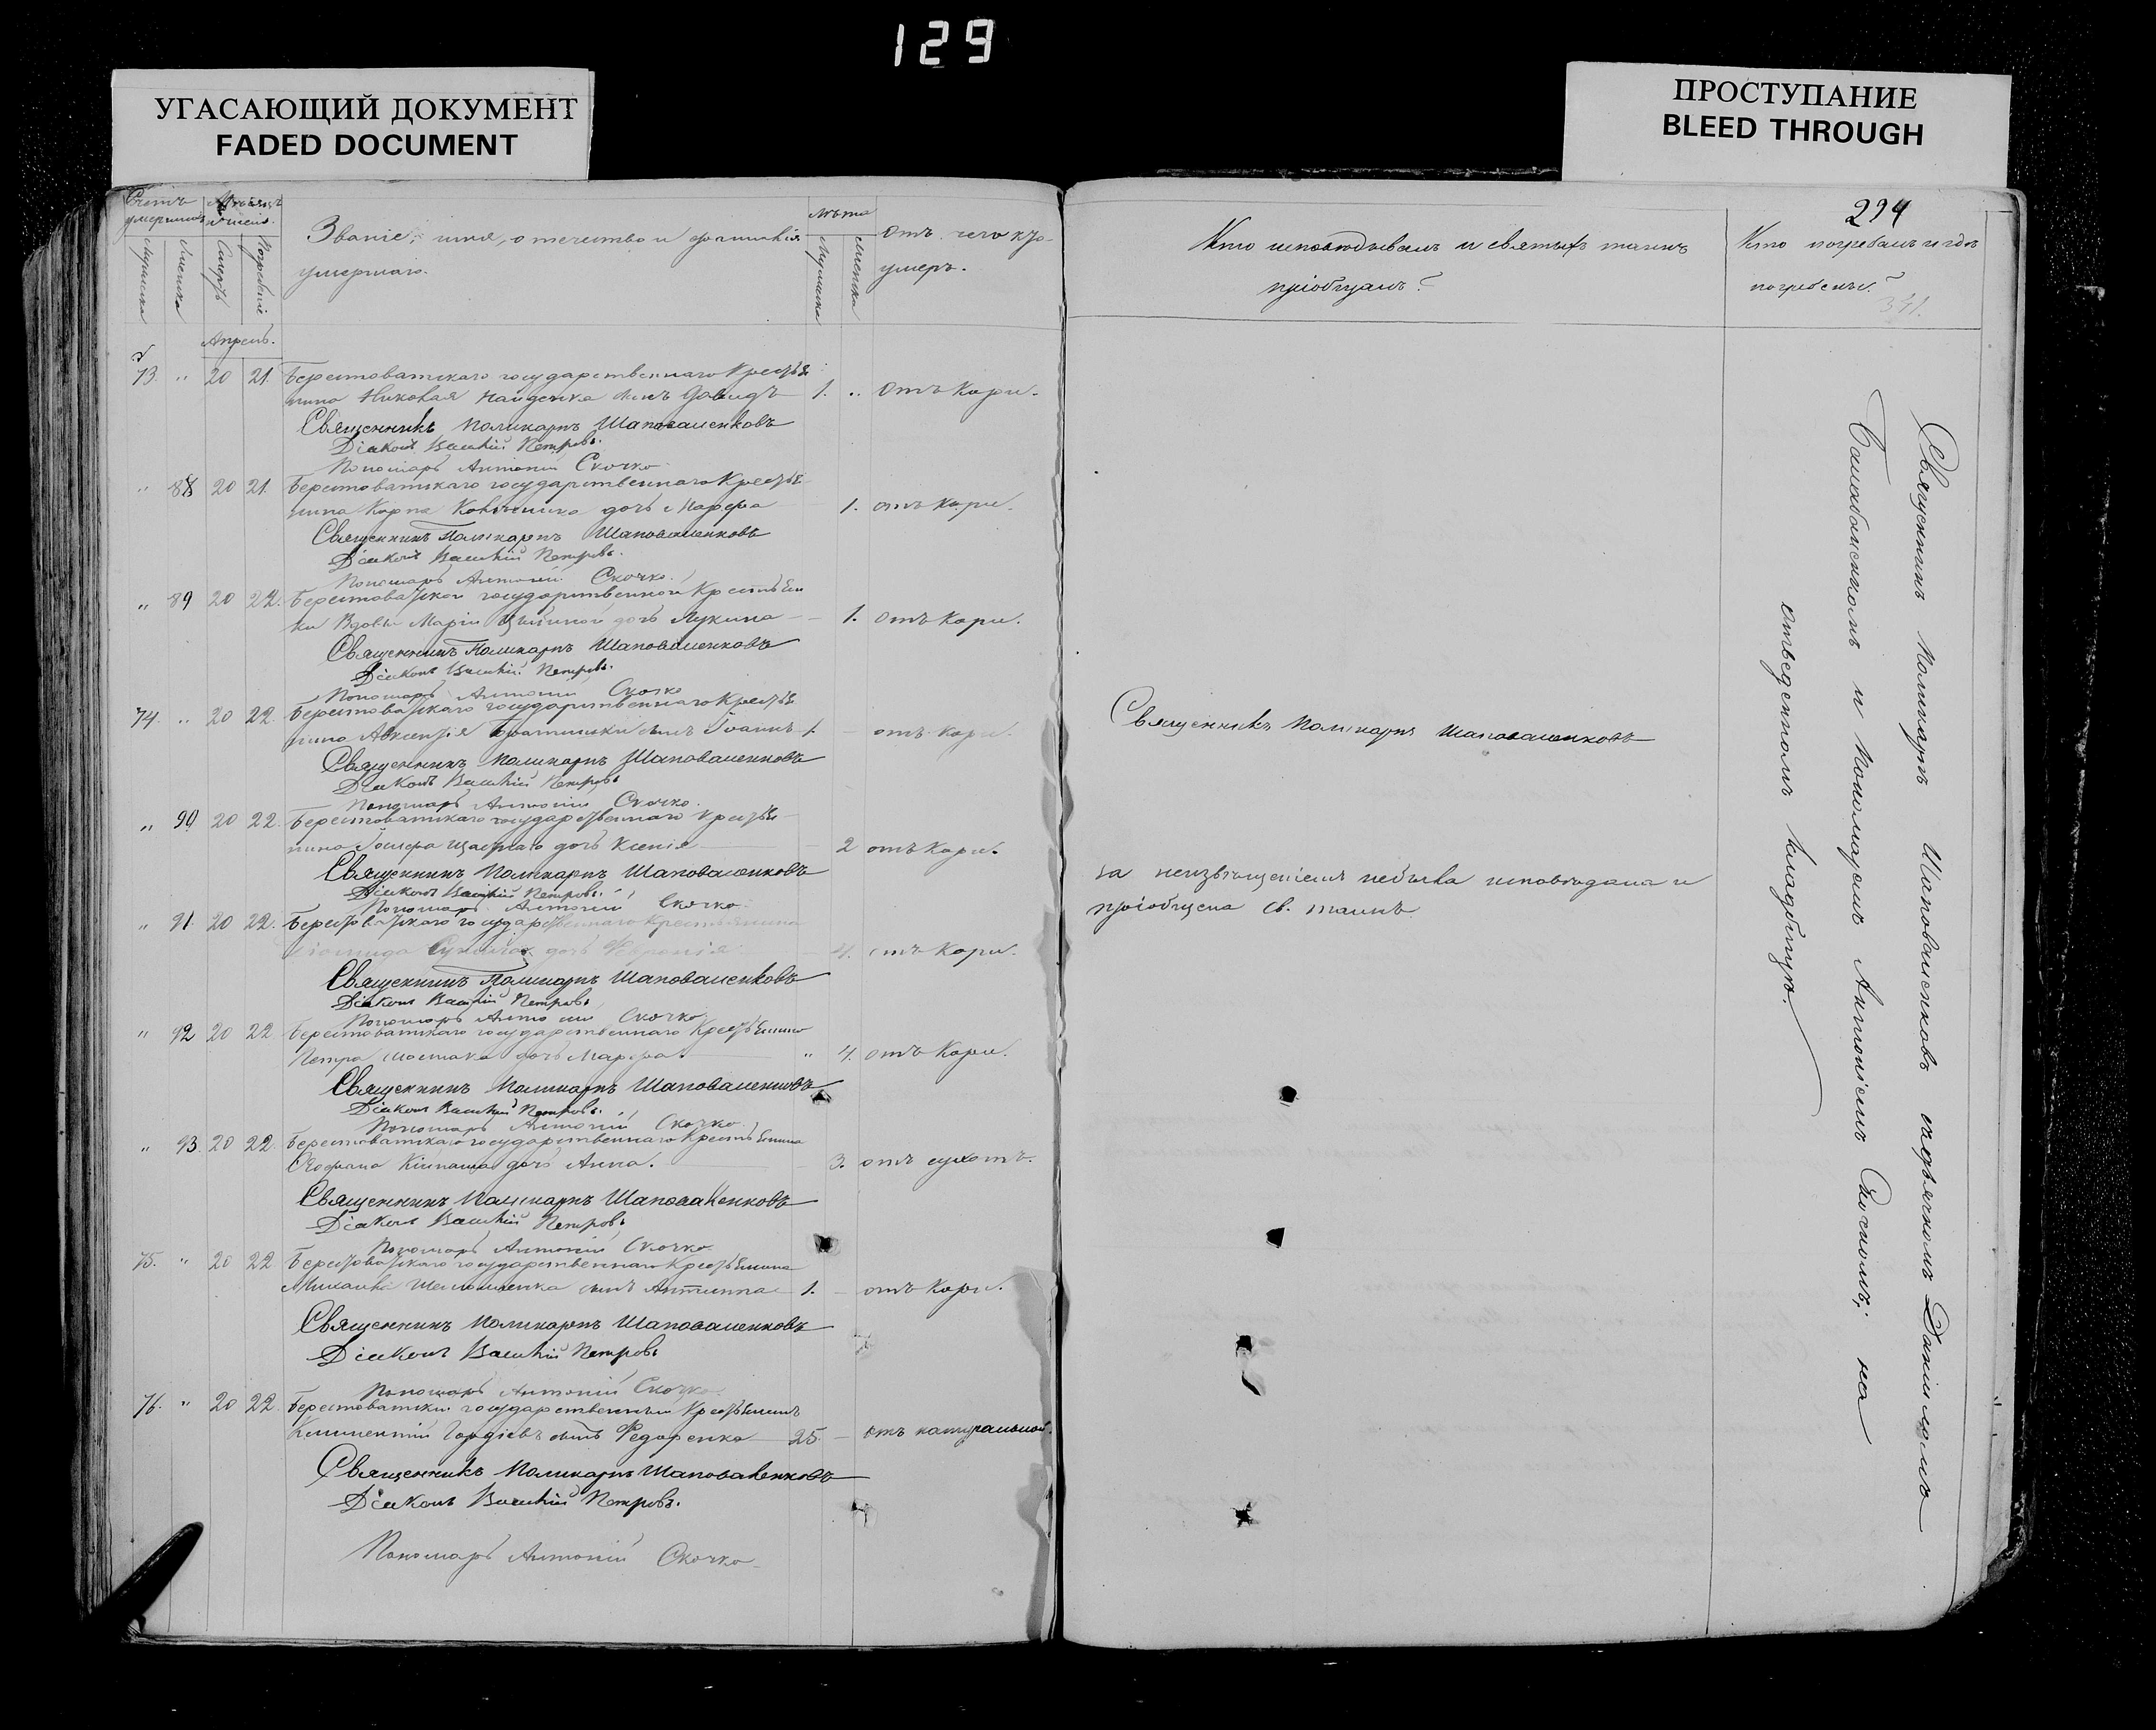 129
УГАСАЮЩИЙ ДОКУМЕНТ
FADED DOCUMENT
ПРОСТУПАНИЕ
BLEED THROUGH
Счетъ умершихъ
Мужеска
Женска
Мѣсяцъ и число
Смерть
Погребеніе
Званіе, имя, отечество и фамилія
умершаго.
Лѣта
Мужеска
Женска
Отъ чего кто
умеръ.
Апрель.
73. " 20 21. Берестоватскаго государственнаго Крестья
нина Николая Найденка сынъ Давидъ 1. " Отъ Кори.
Священникъ Поликарпъ Шаповаленковъ
Діаконъ Василій Петровъ.
Пономарь Антоній Скочко.
" 88 20 21. Берестоватскаго государственнаго Крестья
нина Карпа дочь Марфа 1. отъ Кори.
Священникъ Поликарпъ Шаповаленковъ
Діаконъ Василій Петровъ.
Пономарь Антоній Скочко.
" 89 20 22. Берестоватской государственной Крестьян
ки Вдовы Маріи дочь Лукина 1. Отъ Кори.
Священникъ Поликарпъ Шаповаленковъ
Діаконъ Василій Петровъ.
Пономарь Антоній Скочко
74. " 20 22. Берестоватскаго государственнаго Крестья
нина Авксентія сынъ Іоаннъ 1. – отъ Кори.
Священникъ Поликарпъ Шаповаленковъ
Діаконъ Василій Петровъ
Пономарь Антоній Скочко.
" 90 20 22. Берестоватскаго государственнаго Крестья
нина дочь Ксенія 2 отъ Кори.
Священникъ Поликарпъ Шаповаленковъ
Діаконъ Василій Петровъ.
Пономарь Антоній Скочко
" 91. 20 22. Берестоватскаго государственнаго Крестьянина
дочь 4. отъ Кори.
Священникъ Поликарпъ Шаповаленковъ
Діаконъ Василій Петровъ
Пономарь Антоній Скочко
" 92 20 22 Берестоватскаго государственнаго Крестьянина
Петра Шостака дочь Марфа. " 4. отъ Кори.
Священникъ Поликарпъ Шаповаленковъ
Діаконъ Василій Петровъ.
Пономарь Антоній Скочко.
" 93. 20 22. Берестоватскаго государственнаго Крестьянина
дочь Анна. 3. отъ сухотъ.
Священникъ Поликарпъ Шаповаленковъ
Діаконъ Василій Петровъ
Пономарь Антоній Скочко.
75. " 20 22. Берестоватскаго государственнаго Крестьянина
Михаила сынъ 1. – отъ Кори.
Священникъ Поликарпъ Шаповаленковъ
Діаконъ Василій Петровъ
Пономарь Антоній Скочко.
76. " 20 22. Берестоватскій государственный Крестьянинъ
Климентій Гордіевъ сынъ Федоренко 25. – отъ натуральной.
Священникъ Поликарпъ Шаповаленковъ
Діаконъ Василій Петровъ.
Пономарь Антоній Скочко
294
Кто исповѣдывалъ и святыхъ таинъ
пріобщалъ?
Кто погребалъ и гдѣ
погребенъ?
341.
Священникъ Поликарпъ Шаповаленковъ
за неизвѣщеніемъ небыла исповѣдана и
пріобщена св. таинъ
Священникъ Поликарпъ Шаповаленковъ съ дьячкомъ Даніиломъ
и Пономаремъ Антоніемъ Скочкомъ; на
отведенномъ кладбищѣ.